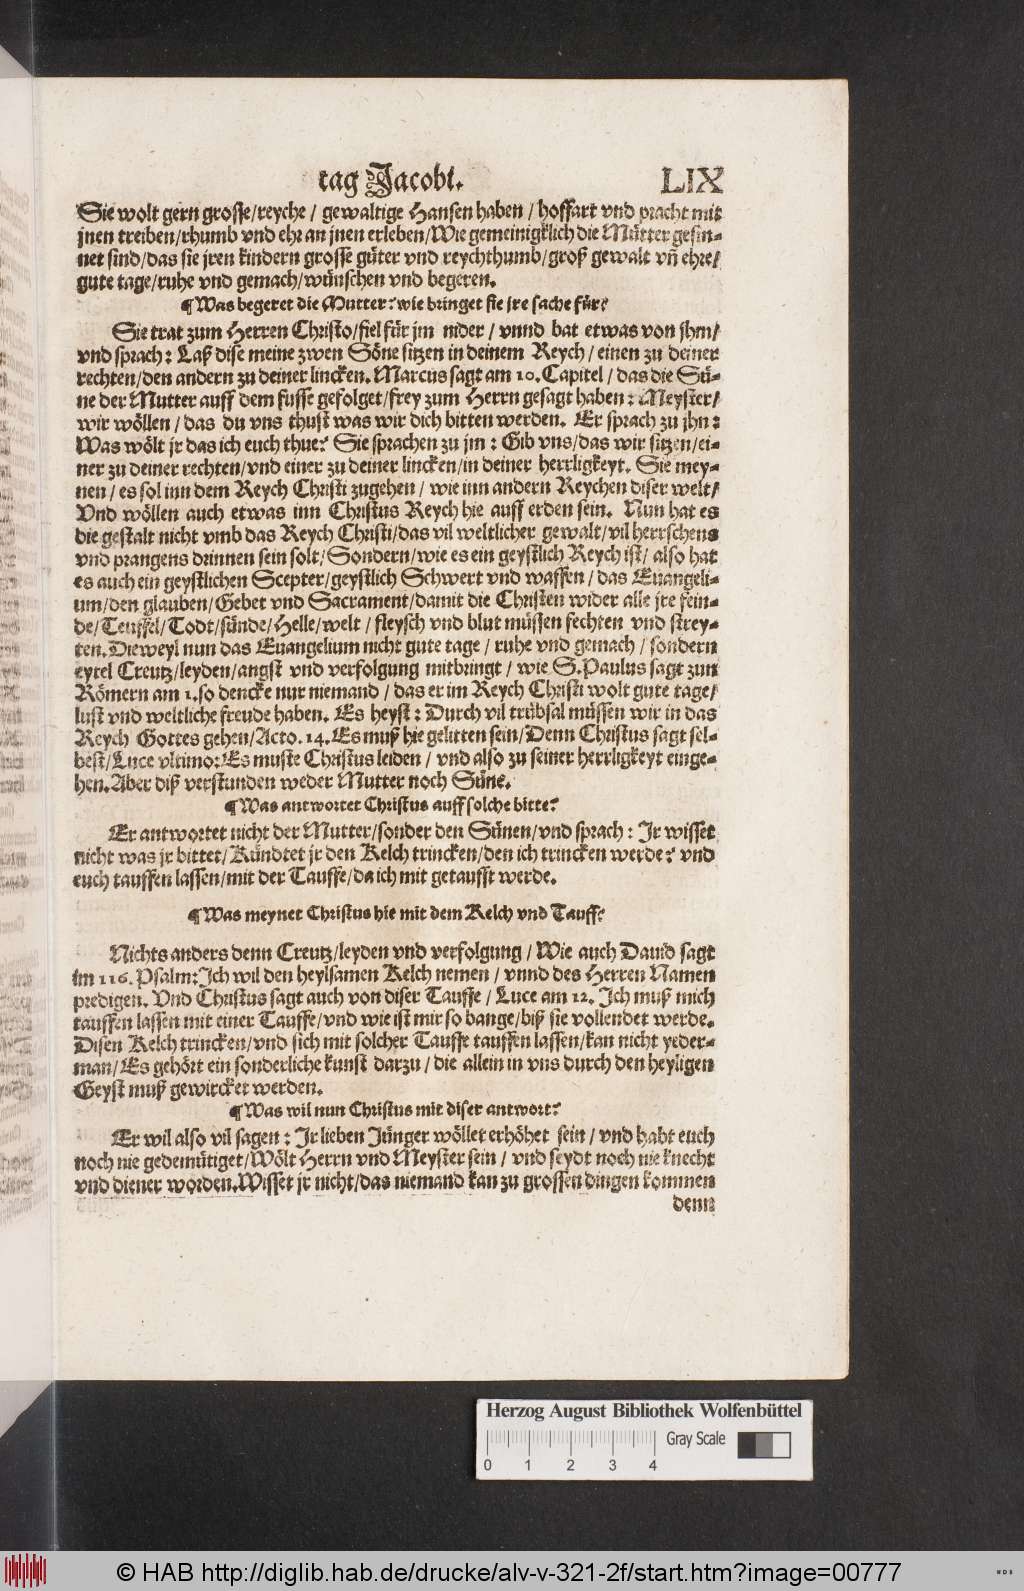 tag Jacobi. LIX
Sie wolt gern grosse/reyche / gewaltige Hansen haben / hoffart vnd pracht mit
jnen treiben/rhumb vnd ehr an jnen erleben/Wie gemeinigklich die Mütter gesin-
net sind/das sie jren kindern grosse güter vnd reychthumb/groß gewalt vñ ehre/
gute tage/ruhe vnd gemach/wünschen vnd begeren.
¶ Was begeret die Mutter? wie bringet sie jre sache für?
Sie trat zum Herren Christo/fiel für jm nider / vnnd bat etwas von jhm/
vnd sprach: Laß dise meine zwen Söne sitzen in deinem Reych / einen zu deiner
rechten/den andern zu deiner lincken. Marcus sagt am 10. Capitel / das die Sü-
ne der Mutter auff dem fusse gefolget/frey zum Herrn gesagt haben: Meyster/
wir wöllen / das du vns thust was wir dich bitten werden. Er sprach zu jhn:
Was wölt jr das ich euch thue? Sie sprachen zu jm: Gib vns/das wir sitzen/ei-
ner zu deiner rechten/vnd einer zu deiner lincken/in deiner herrligkeyt. Sie mey-
nen / es sol inn dem Reych Christi zugehen / wie inn andern Reychen diser welt/
Vnd wöllen auch etwas inn Christus Reych hie auff erden sein. Nun hat es
die gestalt nicht vmb das Reych Christi/das vil weltlicher gewalt/vil herrschens
vnd prangens drinnen sein solt/Sondern/wie es ein geystlich Reych ist/ also hat
es auch ein geystlichen Scepter/geystlich Schwert vnd waffen / das Euangeli-
um/den glauben/Gebet vnd Sacrament/damit die Christen wider alle jre fein-
de/Teuffel/Todt/sünde/Helle/welt / fleysch vnd blut müssen fechten vnd strey-
ten. Dieweyl nun das Euangelium nicht gute tage / ruhe vnd gemach / sondern
eytel Creutz/leyden/angst vnd verfolgung mitbringt / wie S. Paulus sagt zun
Römern am 1. so dencke nur niemand / das er im Reych Christi wolt gute tage/
lust vnd weltliche freude haben. Es heyst: Durch vil trübsal müssen wir in das
Reych Gottes gehen/Acto. 14. Es muß hie gelitten sein/Denn Christus sagt sel-
best/Luce vltimo: Es muste Christus leiden / vnd also zu seiner herrligkeyt einge-
hen. Aber diß verstunden weder Mutter noch Süne.
¶ Was antwortet Christus auff solche bitte?
Er antwortet nicht der Mutter/sonder den Sünen/vnd sprach: Jr wisset
nicht was jr bittet/Kündtet jr den Kelch trincken/den ich trincken werde? vnd
euch tauffen lassen/mit der Tauffe/da ich mit getaufft werde.
¶ Was meynet Christus hie mit dem Kelch vnd Tauff?
Nichts anders denn Creutz/leyden vnd verfolgung / Wie auch Dauid sagt
im 116. Psalm: Jch wil den heylsamen Kelch nemen / vnnd des Herren Namen
predigen. Vnd Christus sagt auch von diser Tauffe / Luce am 12. Jch muß mich
tauffen lassen mit einer Tauffe/vnd wie ist mir so bange/biß sie vollendet werde.
Disen Kelch trincken/vnd sich mit solcher Tauffe tauffen lassen/kan nicht yeder-
man/Es gehört ein sonderliche kunst darzu / die allein in vns durch den heyligen
Geyst muß gewircket werden.
¶ Was wil nun Christus mit diser antwort?
Er wil also vil sagen: Jr lieben Jünger wöllet erhöhet sein / vnd habt euch
noch nie gedemütiget/Wölt Herrn vnd Meyster sein / vnd seydt noch nie knecht
vnd diener worden. Wisset jr nicht/das niemand kan zu grossen dingen kommen
denn
Herzog August Bibliothek Wolfenbüttel
Gray Scale
0 1 2 3 4
© HAB http://diglib.hab.de/drucke/alv-v-321-2f/start.htm?image=00777